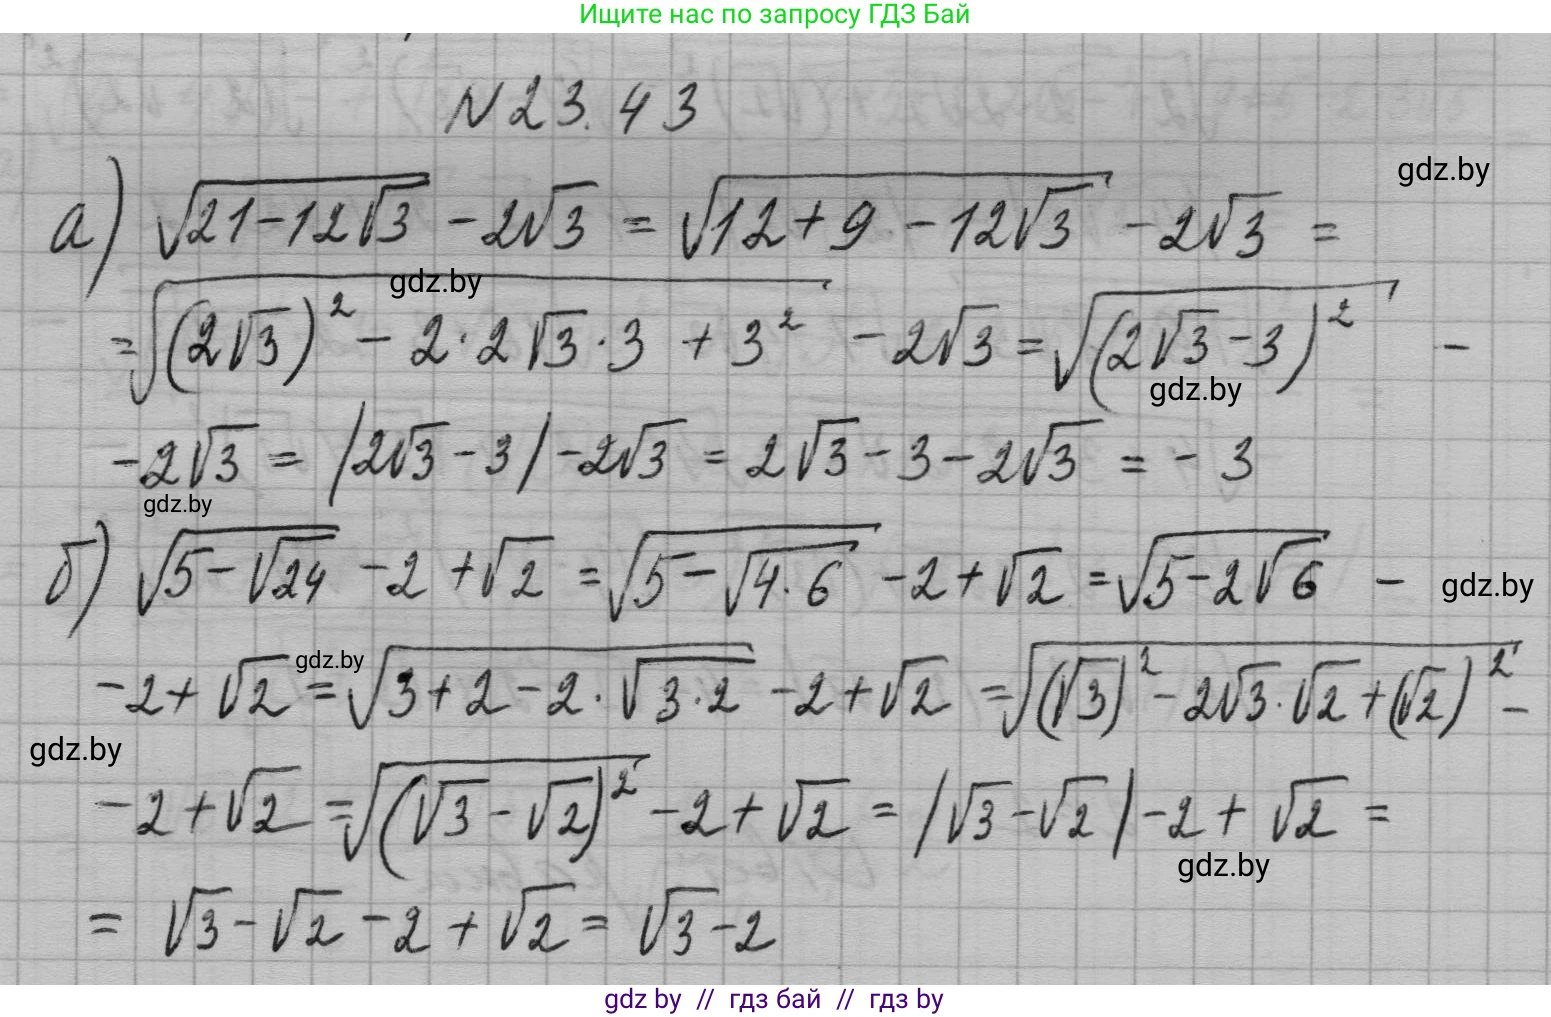 Ищите нас по запросу ГДЗ Бай
N 23.43
gdz.by
а) √(21-12√3) - 2√3 = √(12+9-12√3) - 2√3 =
gdz.by
= √((2√3)² - 2·2√3·3 + 3²) - 2√3 = √((2√3-3)²) -
gdz.by
-2√3 = |2√3-3| - 2√3 = 2√3 - 3 - 2√3 = -3
gdz.by
б) √(5-√24) - 2 + √2 = √(5-√(4·6)) - 2 + √2 = √(5-2√6) -
gdz.by
-2+√2 = √(3+2-2·√(3·2)) - 2 + √2 = √((√3)² - 2√3·√2 + (√2)²) -
gdz.by
gdz.by
-2+√2 = √((√3-√2)²) - 2 + √2 = |√3-√2| - 2 + √2 =
gdz.by
= √3 - √2 - 2 + √2 = √3 - 2
gdz by // гдз бай // гдз by